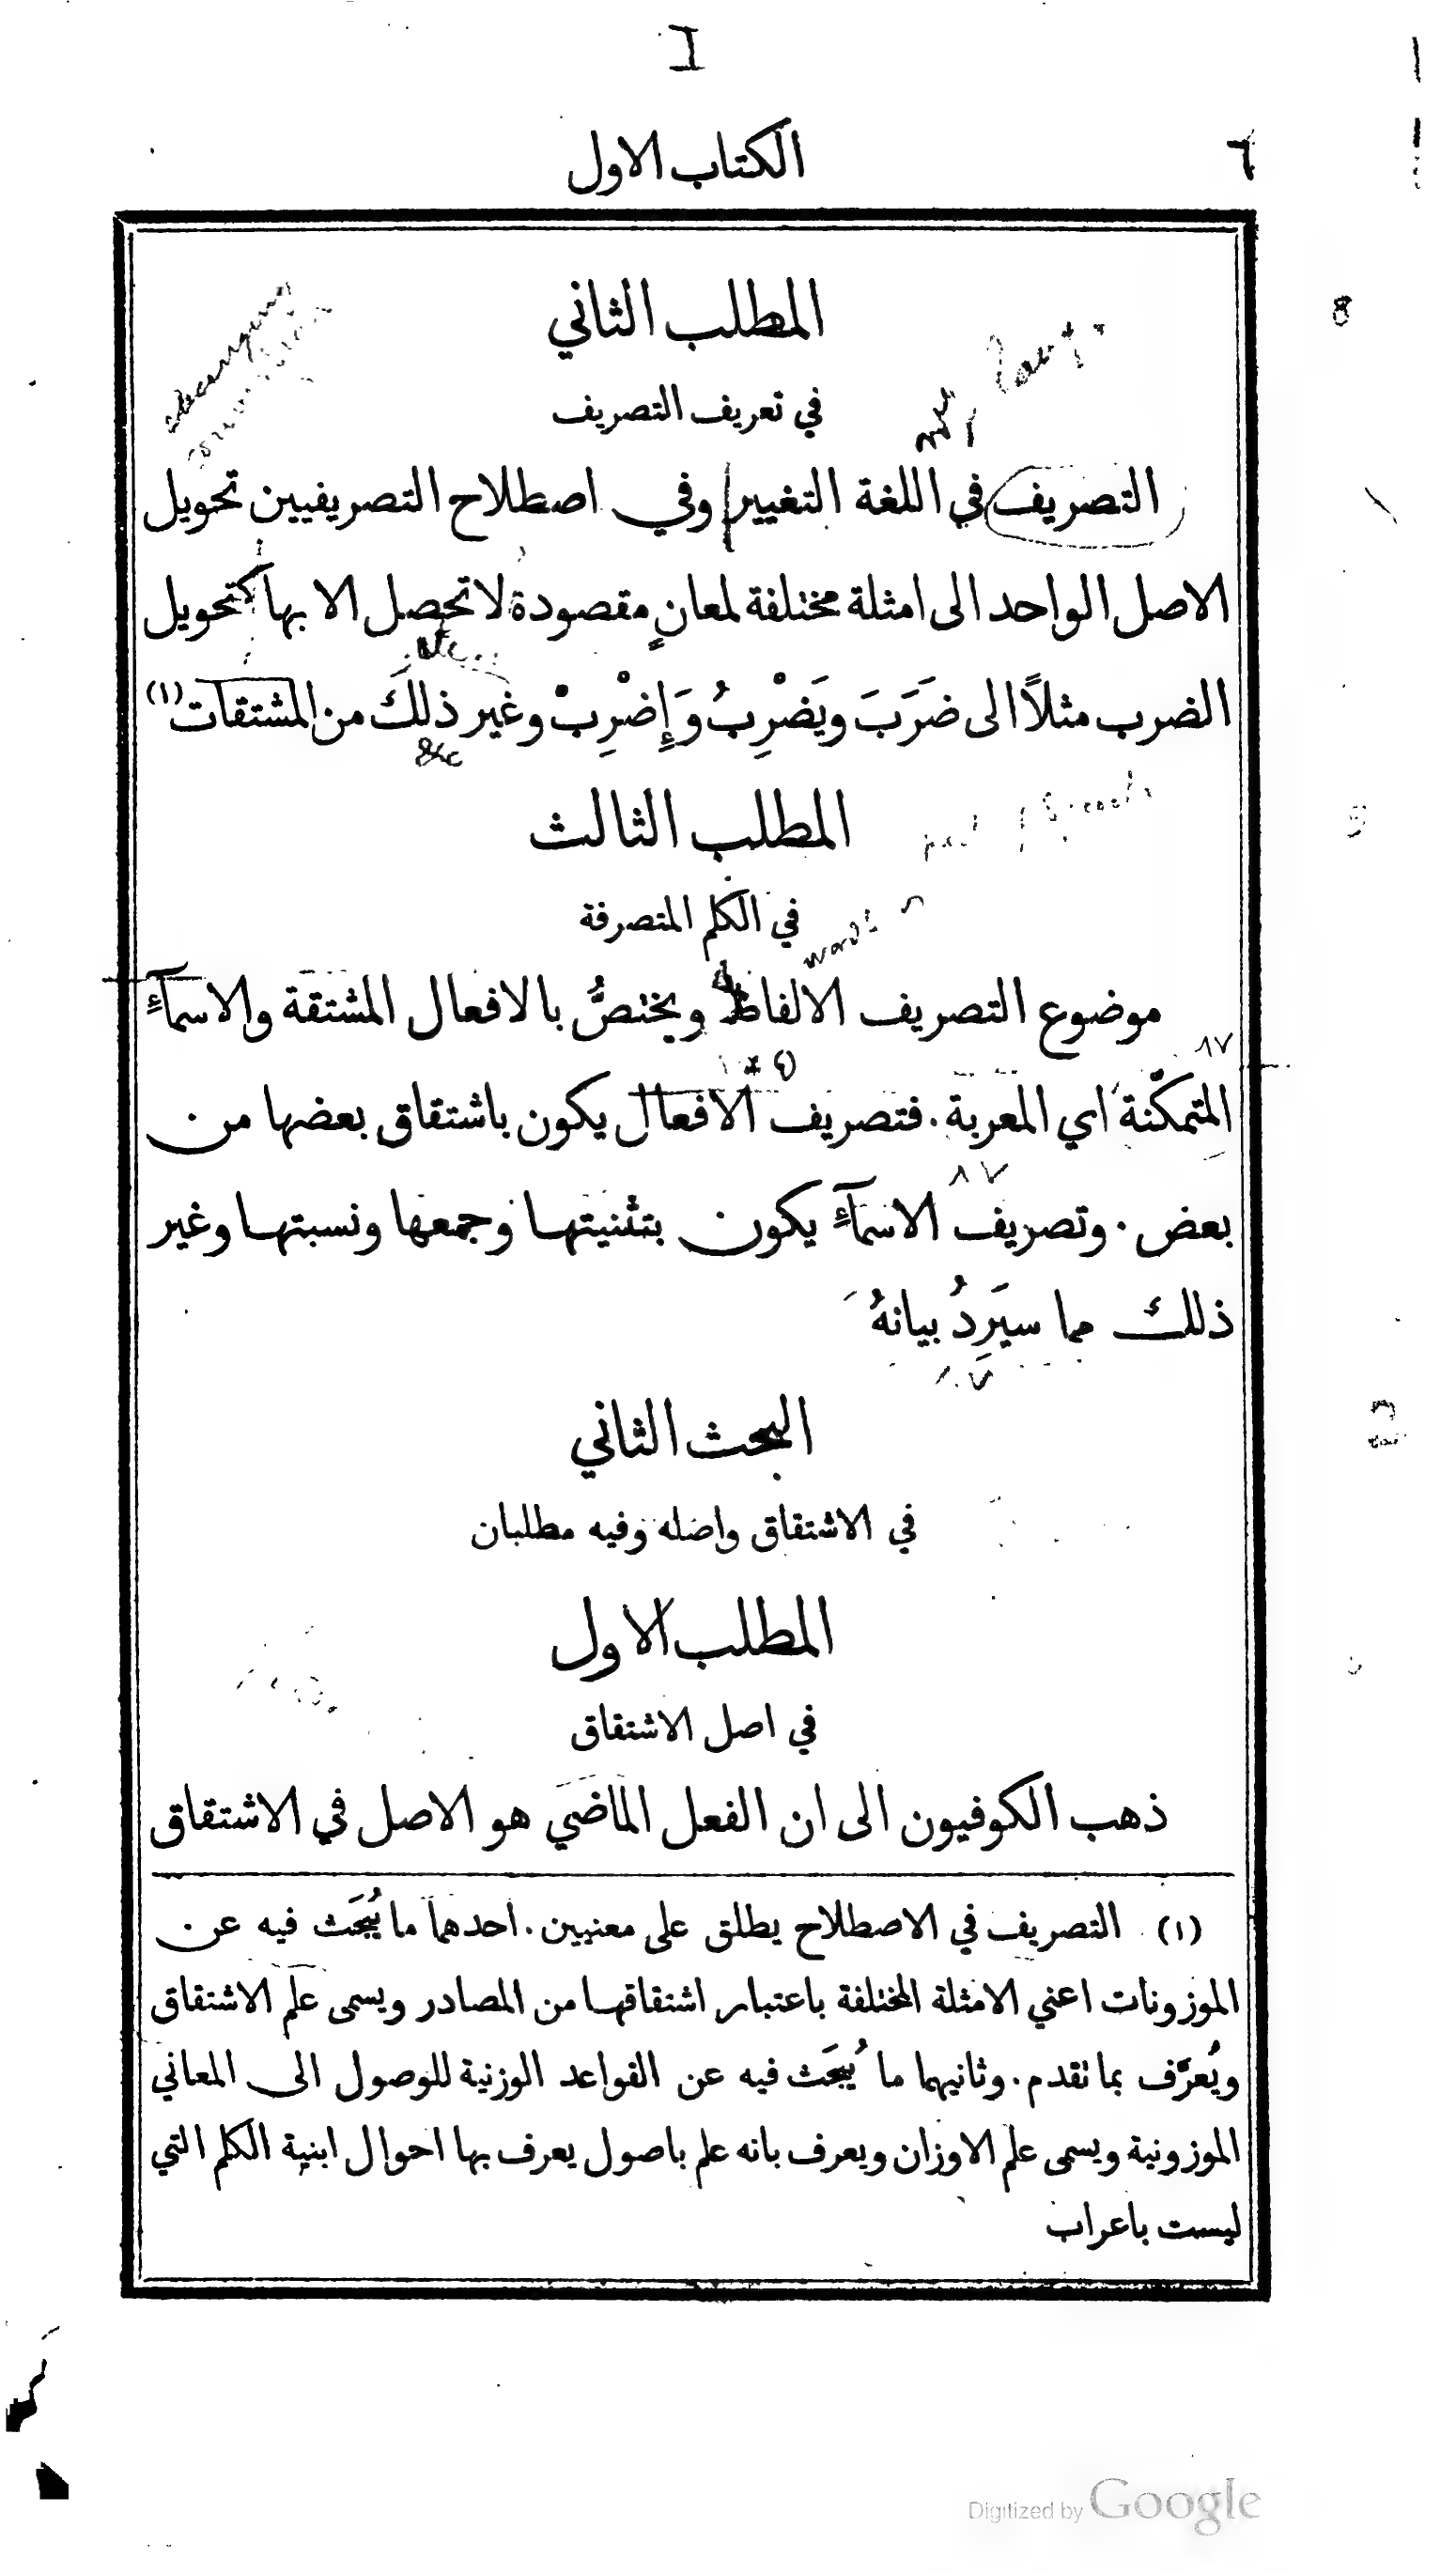 I
٦
الكتاب الاول
المطلب الثاني
في تعريف التصريف
التصريف في اللغة التغيير وفي اصطلاح التصريفيين تحويل
الاصل الواحد الى امثلة مختلفة لمعانٍ مقصودة لا تحصل الا بها كتحويل
الضرب مثلاً الى ضَرَبَ ويَضْرِبُ وَإِضْرِبْ وغير ذلك من المشتقات (١)
&c
المطلب الثالث
في الكلم المتصرفة
words
موضوع التصريف الالفاظ ويختصُّ بالافعال المشتقة والاسمآءِ
٨٧
المتمكّنة اي المعربة. فتصريف الافعال يكون باشتقاق بعضها من
٨٧
بعض. وتصريف الاسمآءِ يكون بتثنيتها وجمعها ونسبتها وغير
ذلك مما سيَرِدُ بيانهُ
البحث الثاني
في الاشتقاق واصله وفيه مطلبان
المطلب الاول
في اصل الاشتقاق
ذهب الكوفيون الى ان الفعل الماضي هو الاصل في الاشتقاق
(١) التصريف في الاصطلاح يطلق على معنيين. احدهما ما يُبحَث فيه عن
الموزونات اعني الامثلة المختلفة باعتبار اشتقاقها من المصادر ويسمى علم الاشتقاق
ويُعرَّف بما تقدم. وثانيهما ما يُبحَث فيه عن القواعد الوزنية للوصول الى المعاني
الموزونية ويسمى علم الاوزان ويعرف بانه علم باصول يعرف بها احوال ابنية الكلم التي
ليست باعراب
Digitized by Google